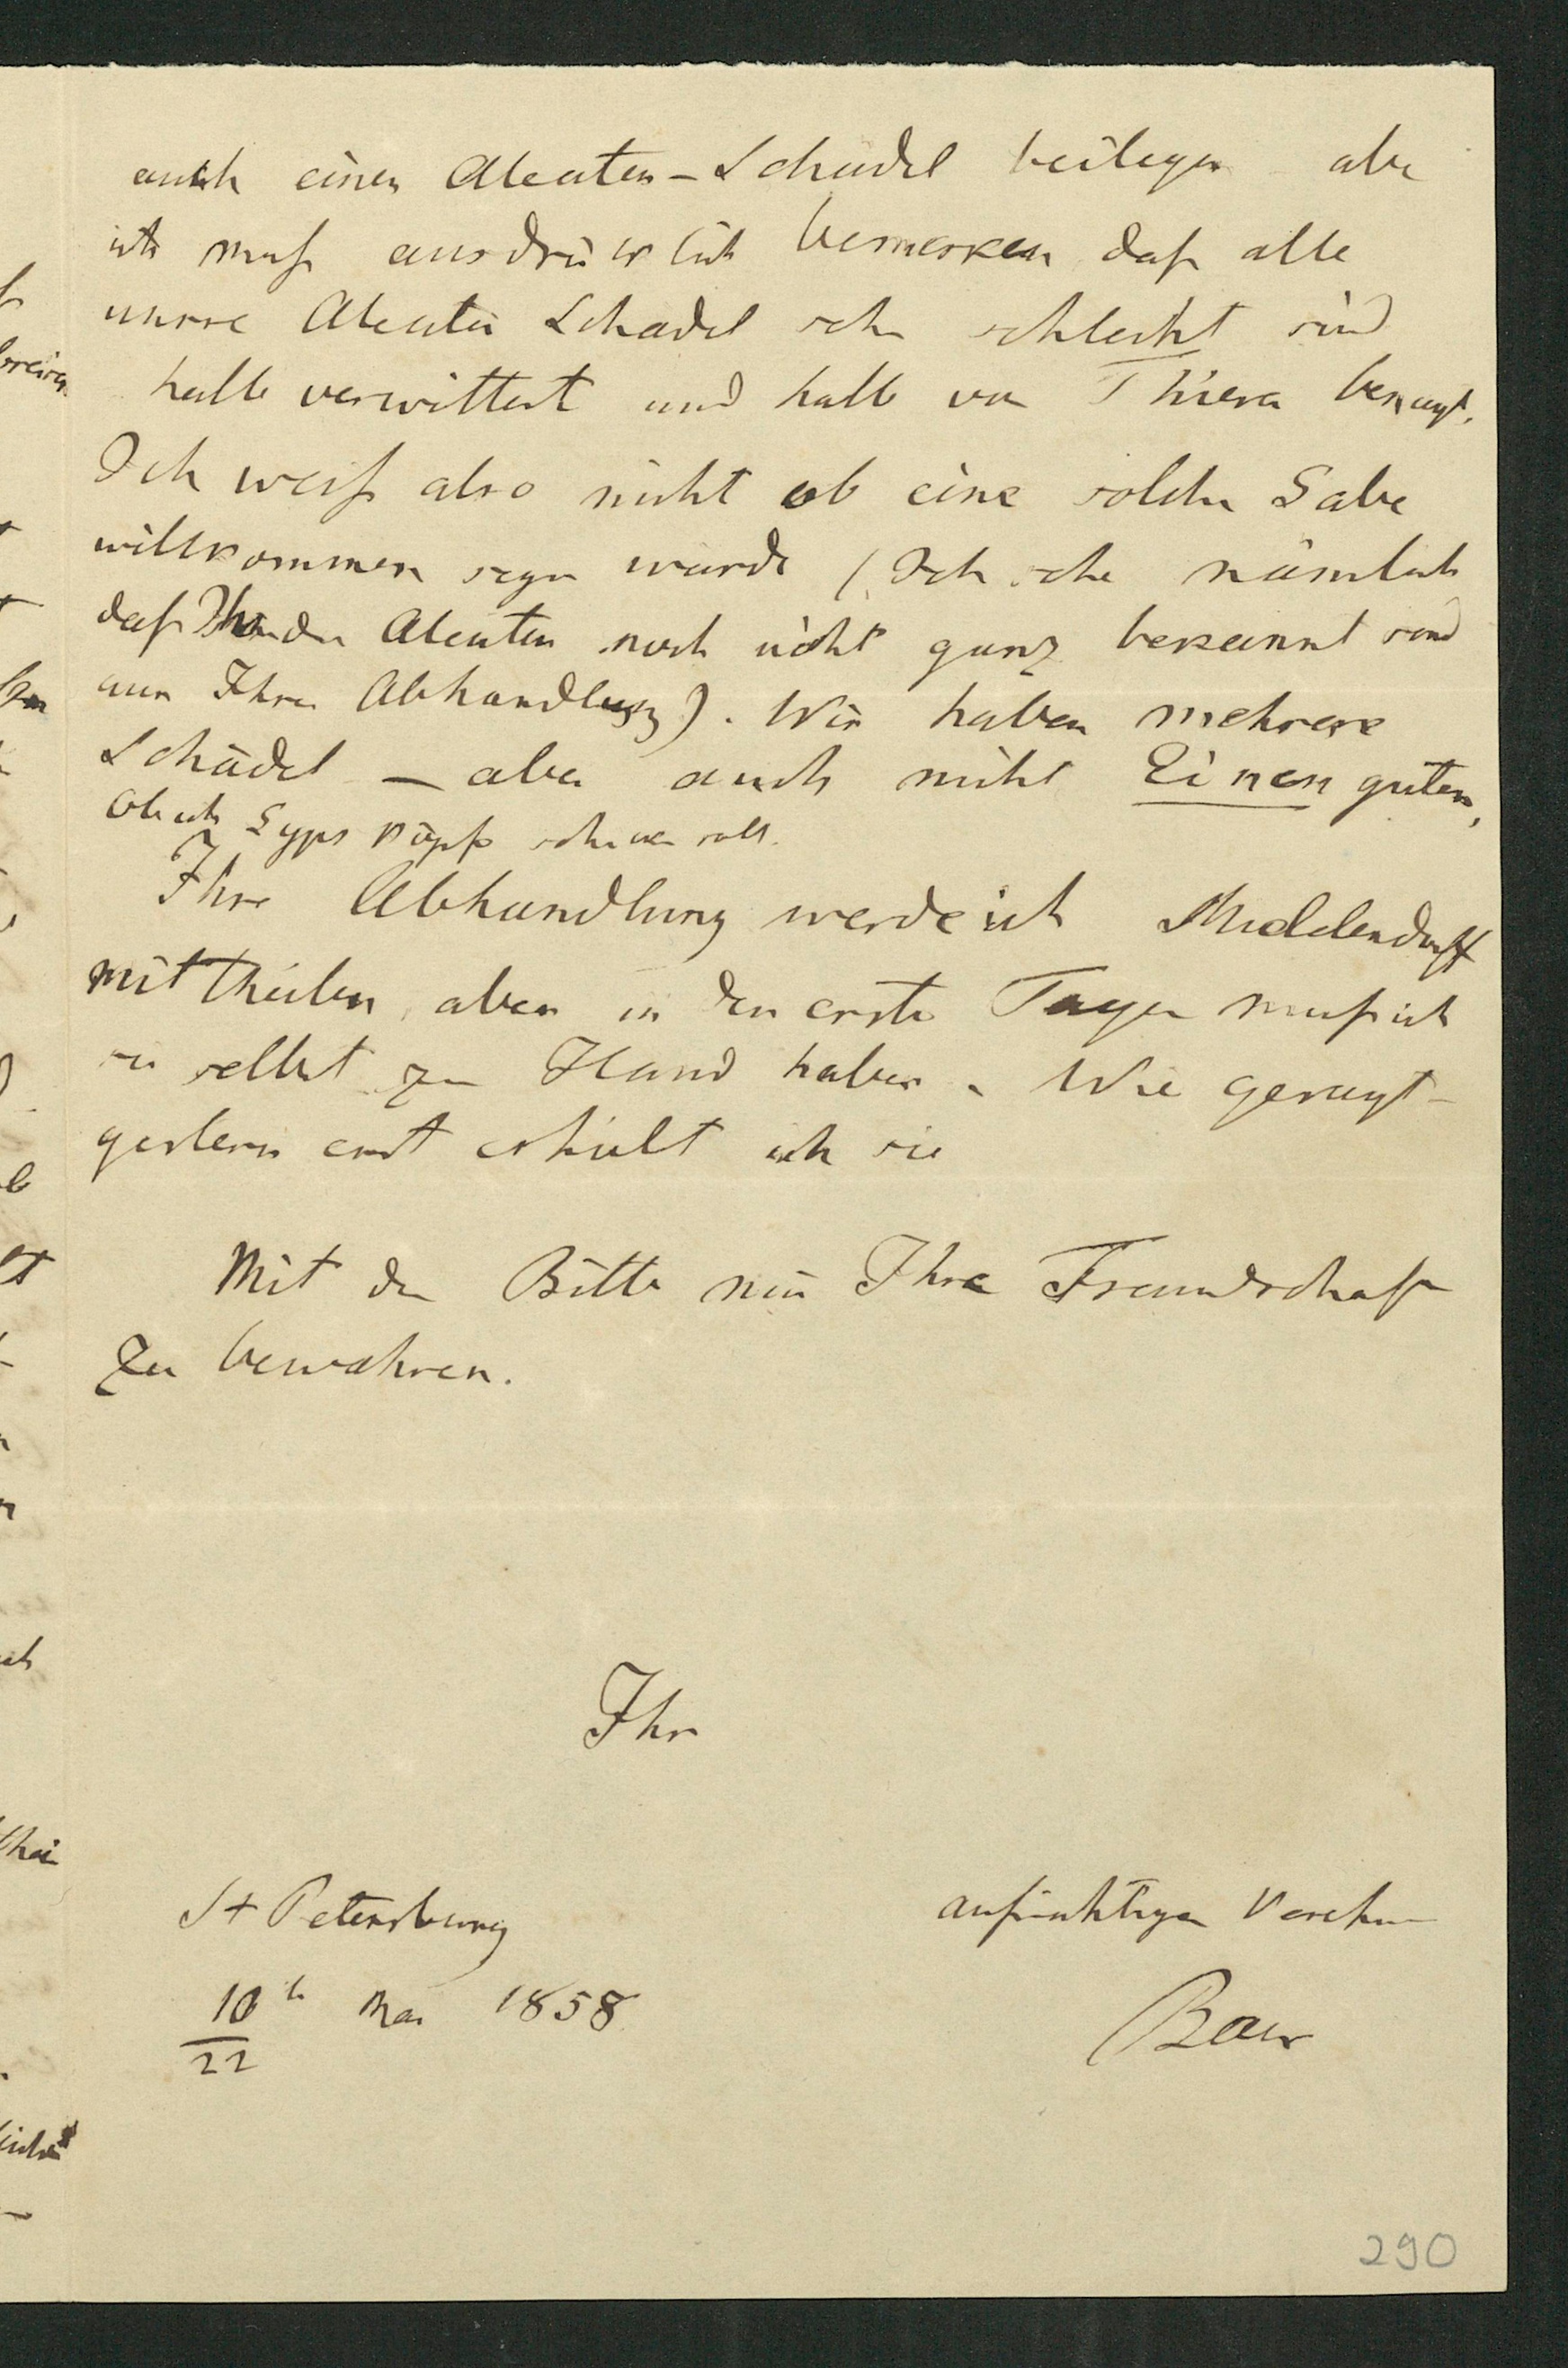 auch einen Aleuten-Schädel beilegen aber
ich muß ausdrücklich bemerken daß alle
unsre Aleuten Schädel sehr schlecht sind
halb verwittert und halb von Thieren benagt.
Ich weiß also nicht ob eine solche Gabe
willkommen seyn würde (Ich sehe nämlich
daß Ihnen die Aleuten noch nicht ganz bekannt sind
aus Ihrer Abhandlung). Wir haben mehrere
Schädel — aber auch nicht Einen guten,
Ob ich Gyps köpfe schicken soll.
Ihre Abhandlung werde ich Middendorff
mittheilen, aber in den ersten Tagen muß ich
sie selbst zur Hand haben. Wie gesagt –
gestern erst erhielt ich sie
Mit der Bitte mir Ihre Freundschaft
zu bewahren.
Ihr
aufrichtiger Verehrer
Baer
St Petersburg
10 Mai 1858
22
290